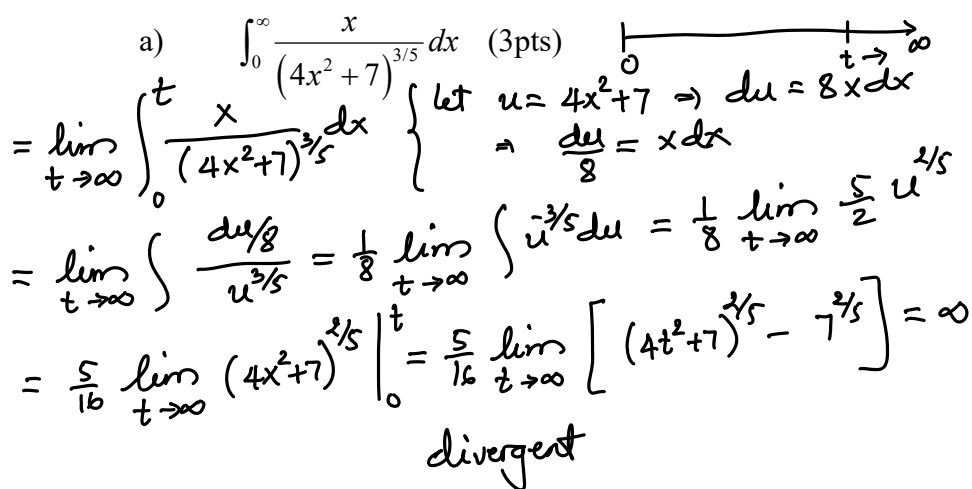 a) ∫₀^∞ x / (4x² + 7)^{3/5} dx (3pts) 0 t → ∞
= lim_{t→∞} ∫₀^t x / (4x²+7)^{3/5} dx { let u = 4x²+7 ⇒ du = 8x dx
⇒ du/8 = x dx
= lim_{t→∞} ∫ (du/8) / u^{3/5} = 1/8 lim_{t→∞} ∫ u^{-3/5} du = 1/8 lim_{t→∞} 5/2 u^{2/5}
= 5/16 lim_{t→∞} (4x²+7)^{2/5} |₀^t = 5/16 lim_{t→∞} [ (4t²+7)^{2/5} - 7^{2/5} ] = ∞
divergent